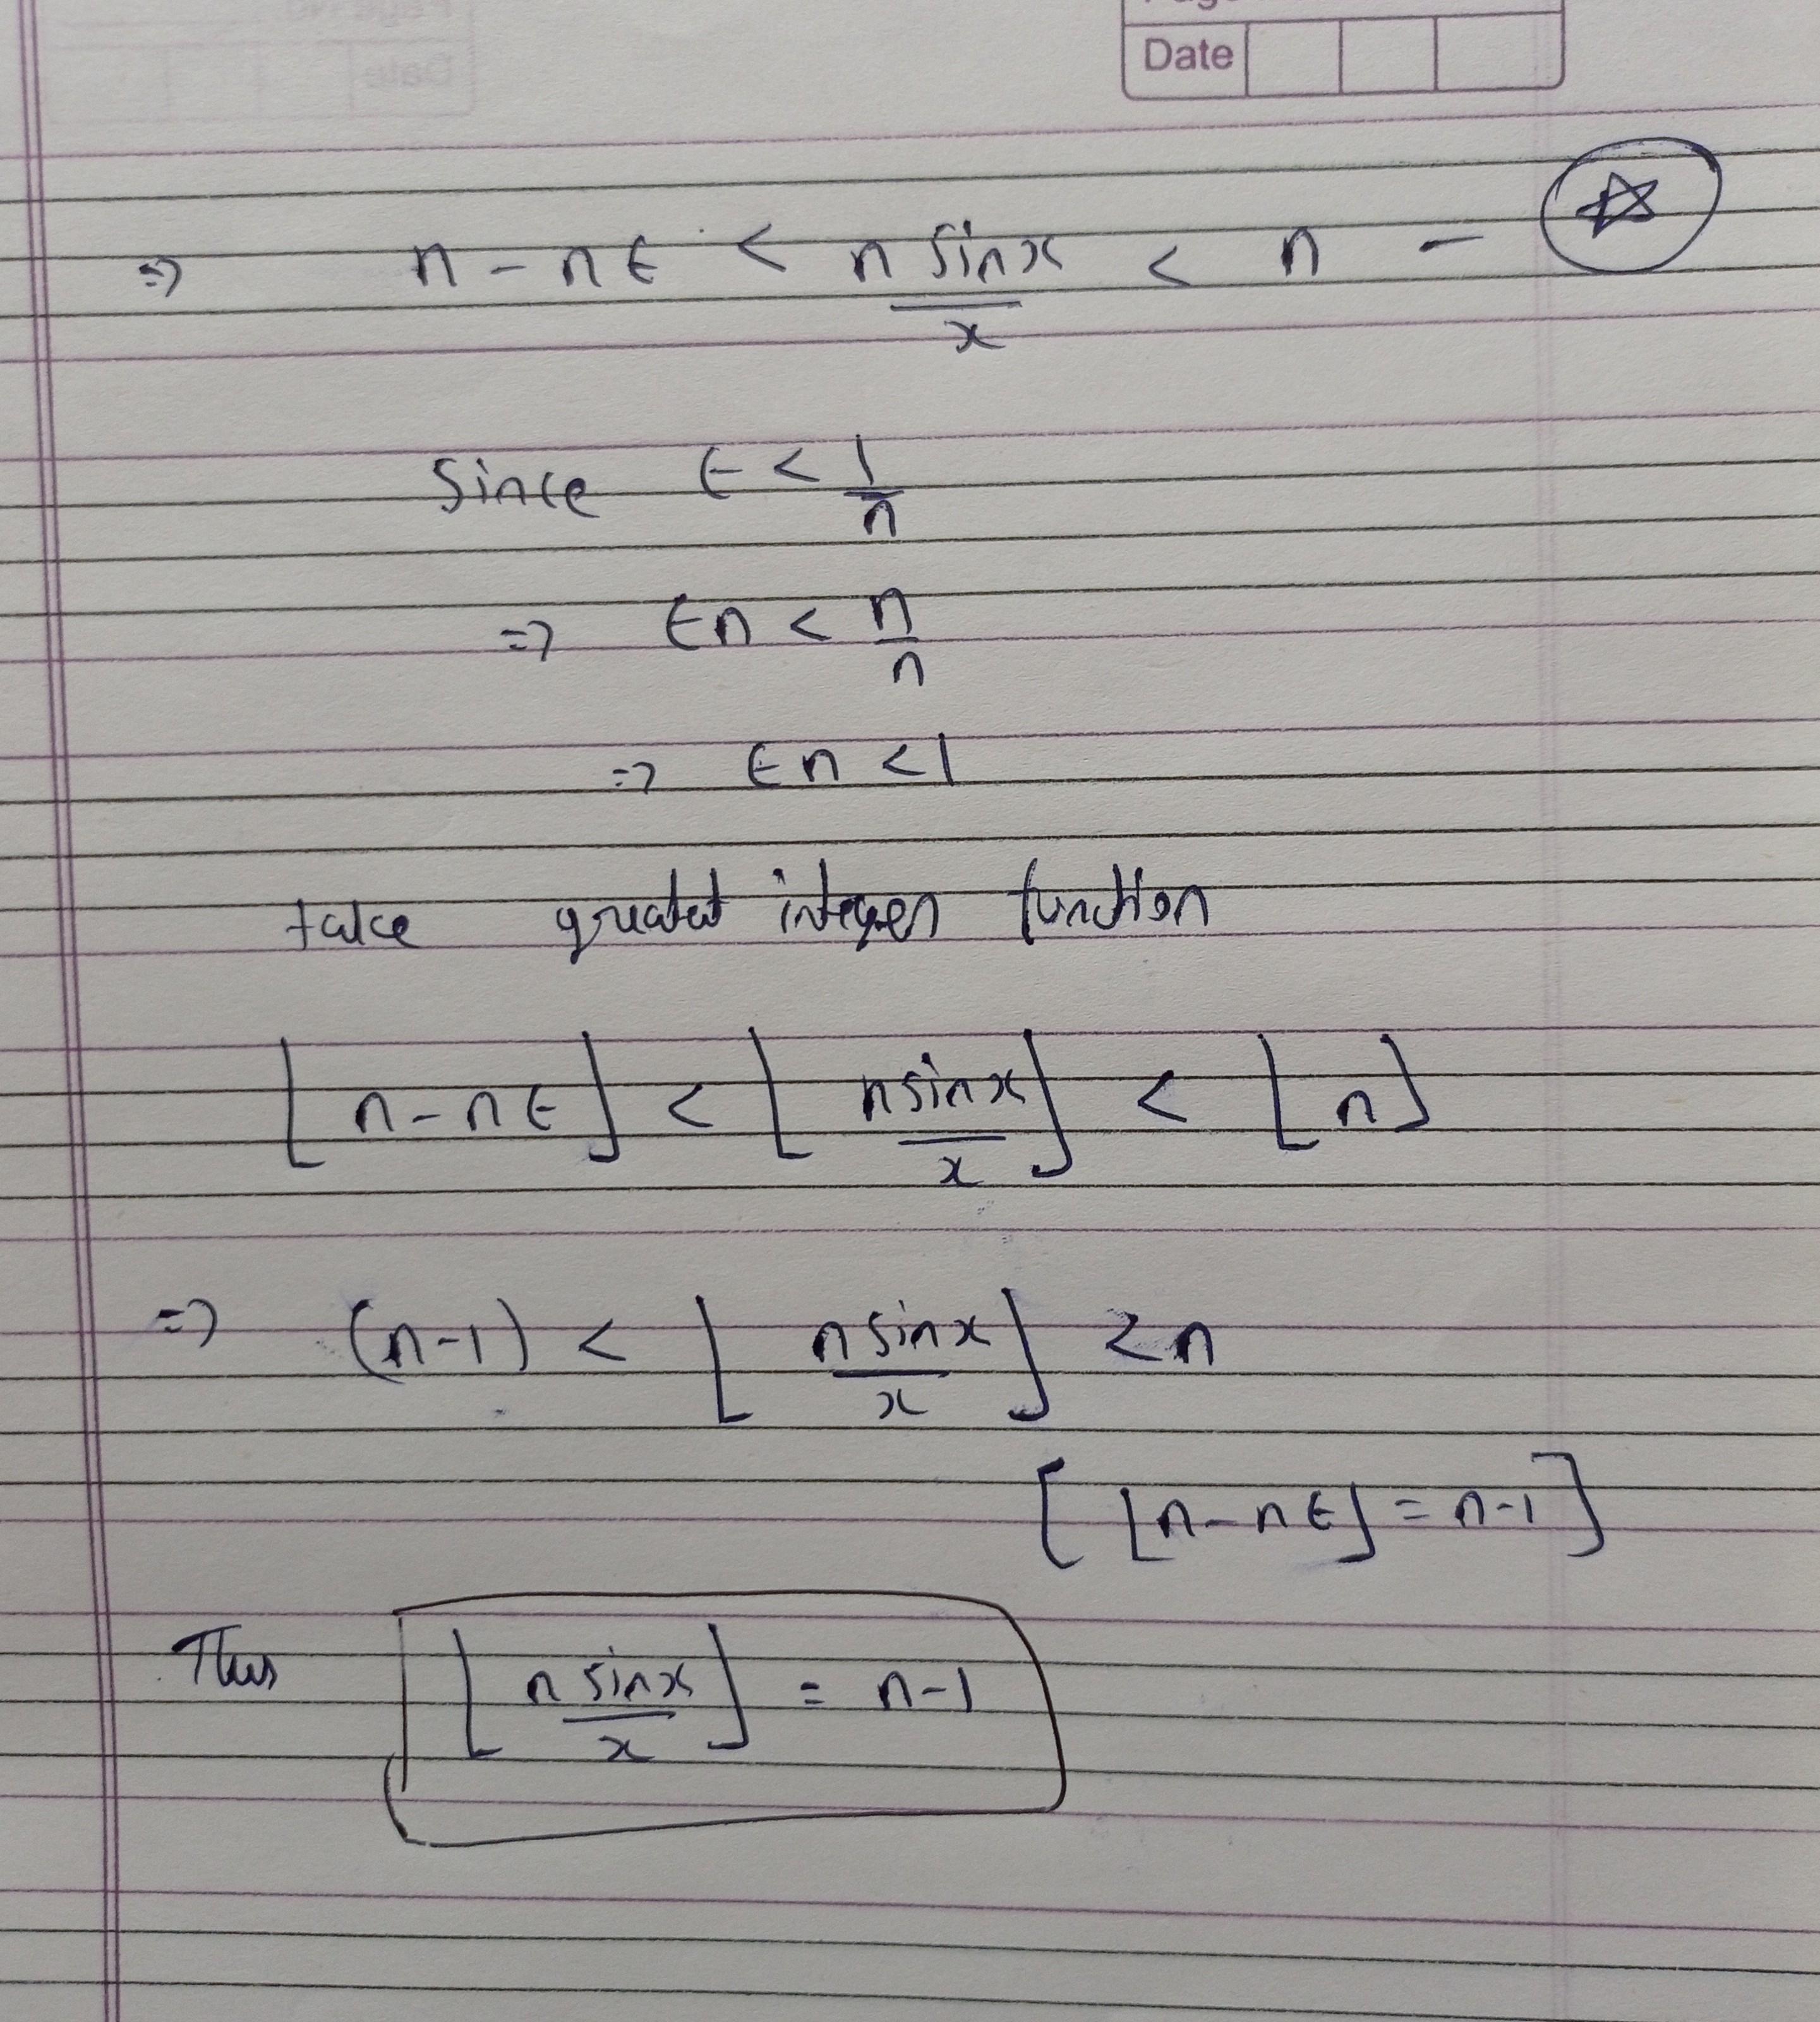 Date
⇒ n - nϵ < n sinx / x < n - ☆
Since ϵ < 1/n
⇒ ϵn < n/n
⇒ ϵn < 1
take greatest integer function
⌊n - nϵ⌋ < ⌊n sinx / x⌋ < ⌊n⌋
⇒ (n-1) < ⌊n sinx / x⌋ < n
[⌊n - nϵ⌋ = n-1]
Thus ⌊n sinx / x⌋ = n-1